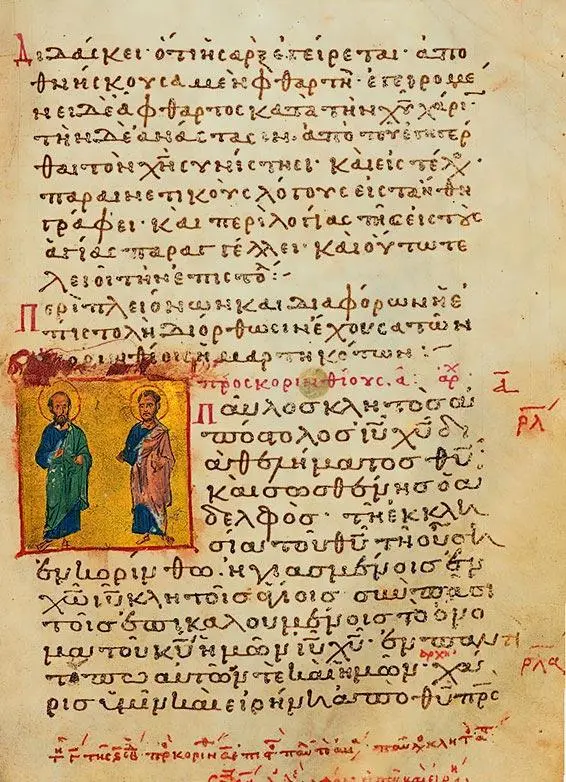 Διδάσκει· ὅτι ἡ σὰρξ ἐγείρεται· ἀπο
θνήσκουσα μὲν φθαρτὴ· ἐγειρομέ
νη δὲ ἄφθαρτος κατὰ τὴν χυ χάρι
τὴν δὲ ἀνάστασιν· ἀπὸ τοῦ ἐγηγέρ
θαι τὸν χν συνίστησι· καὶ εἰς τέλος
παραινετικοὺς λόγους εἰς
γράφει· καὶ περὶ λογίας τῆς εἰς τοὺς
ἁγίους παραγγέλλει· καὶ οὕτω τε
λειοῖ τὴν ἐπιστο
Περὶ πλειόνων καὶ διαφόρων ἡ ἐ
πιστολὴ διόρθωσιν ἔχουσα τῶν
κορινθίοις ἡμαρτηκότων
προς κορινθίους· α
Παῦλος κλητὸς ἀ
πόστολος ιυ χυ δι
ὰ θελήματος θυ
καὶ σωσθένης ὁ ἀ
δελφὸς· τῇ ἐκκλη
σίᾳ τοῦ θυ τῇ οὔσῃ
ἐν κορίνθω· ἡγιασμένοις ἐν
χω ιυ κλητοῖς ἁγίοις σὺν πᾶσι
τοῖς ἐπικαλουμένοις τὸ ὄνο
μα τοῦ κυ ἡμῶν ιυ χυ· ἐν παντὶ
τόπω αὐτῶν τε καὶ ἡμῶν· χά
ρις ὑμῖν καὶ εἰρήνη ἀπὸ θυ πρς
ρλ
ρλα